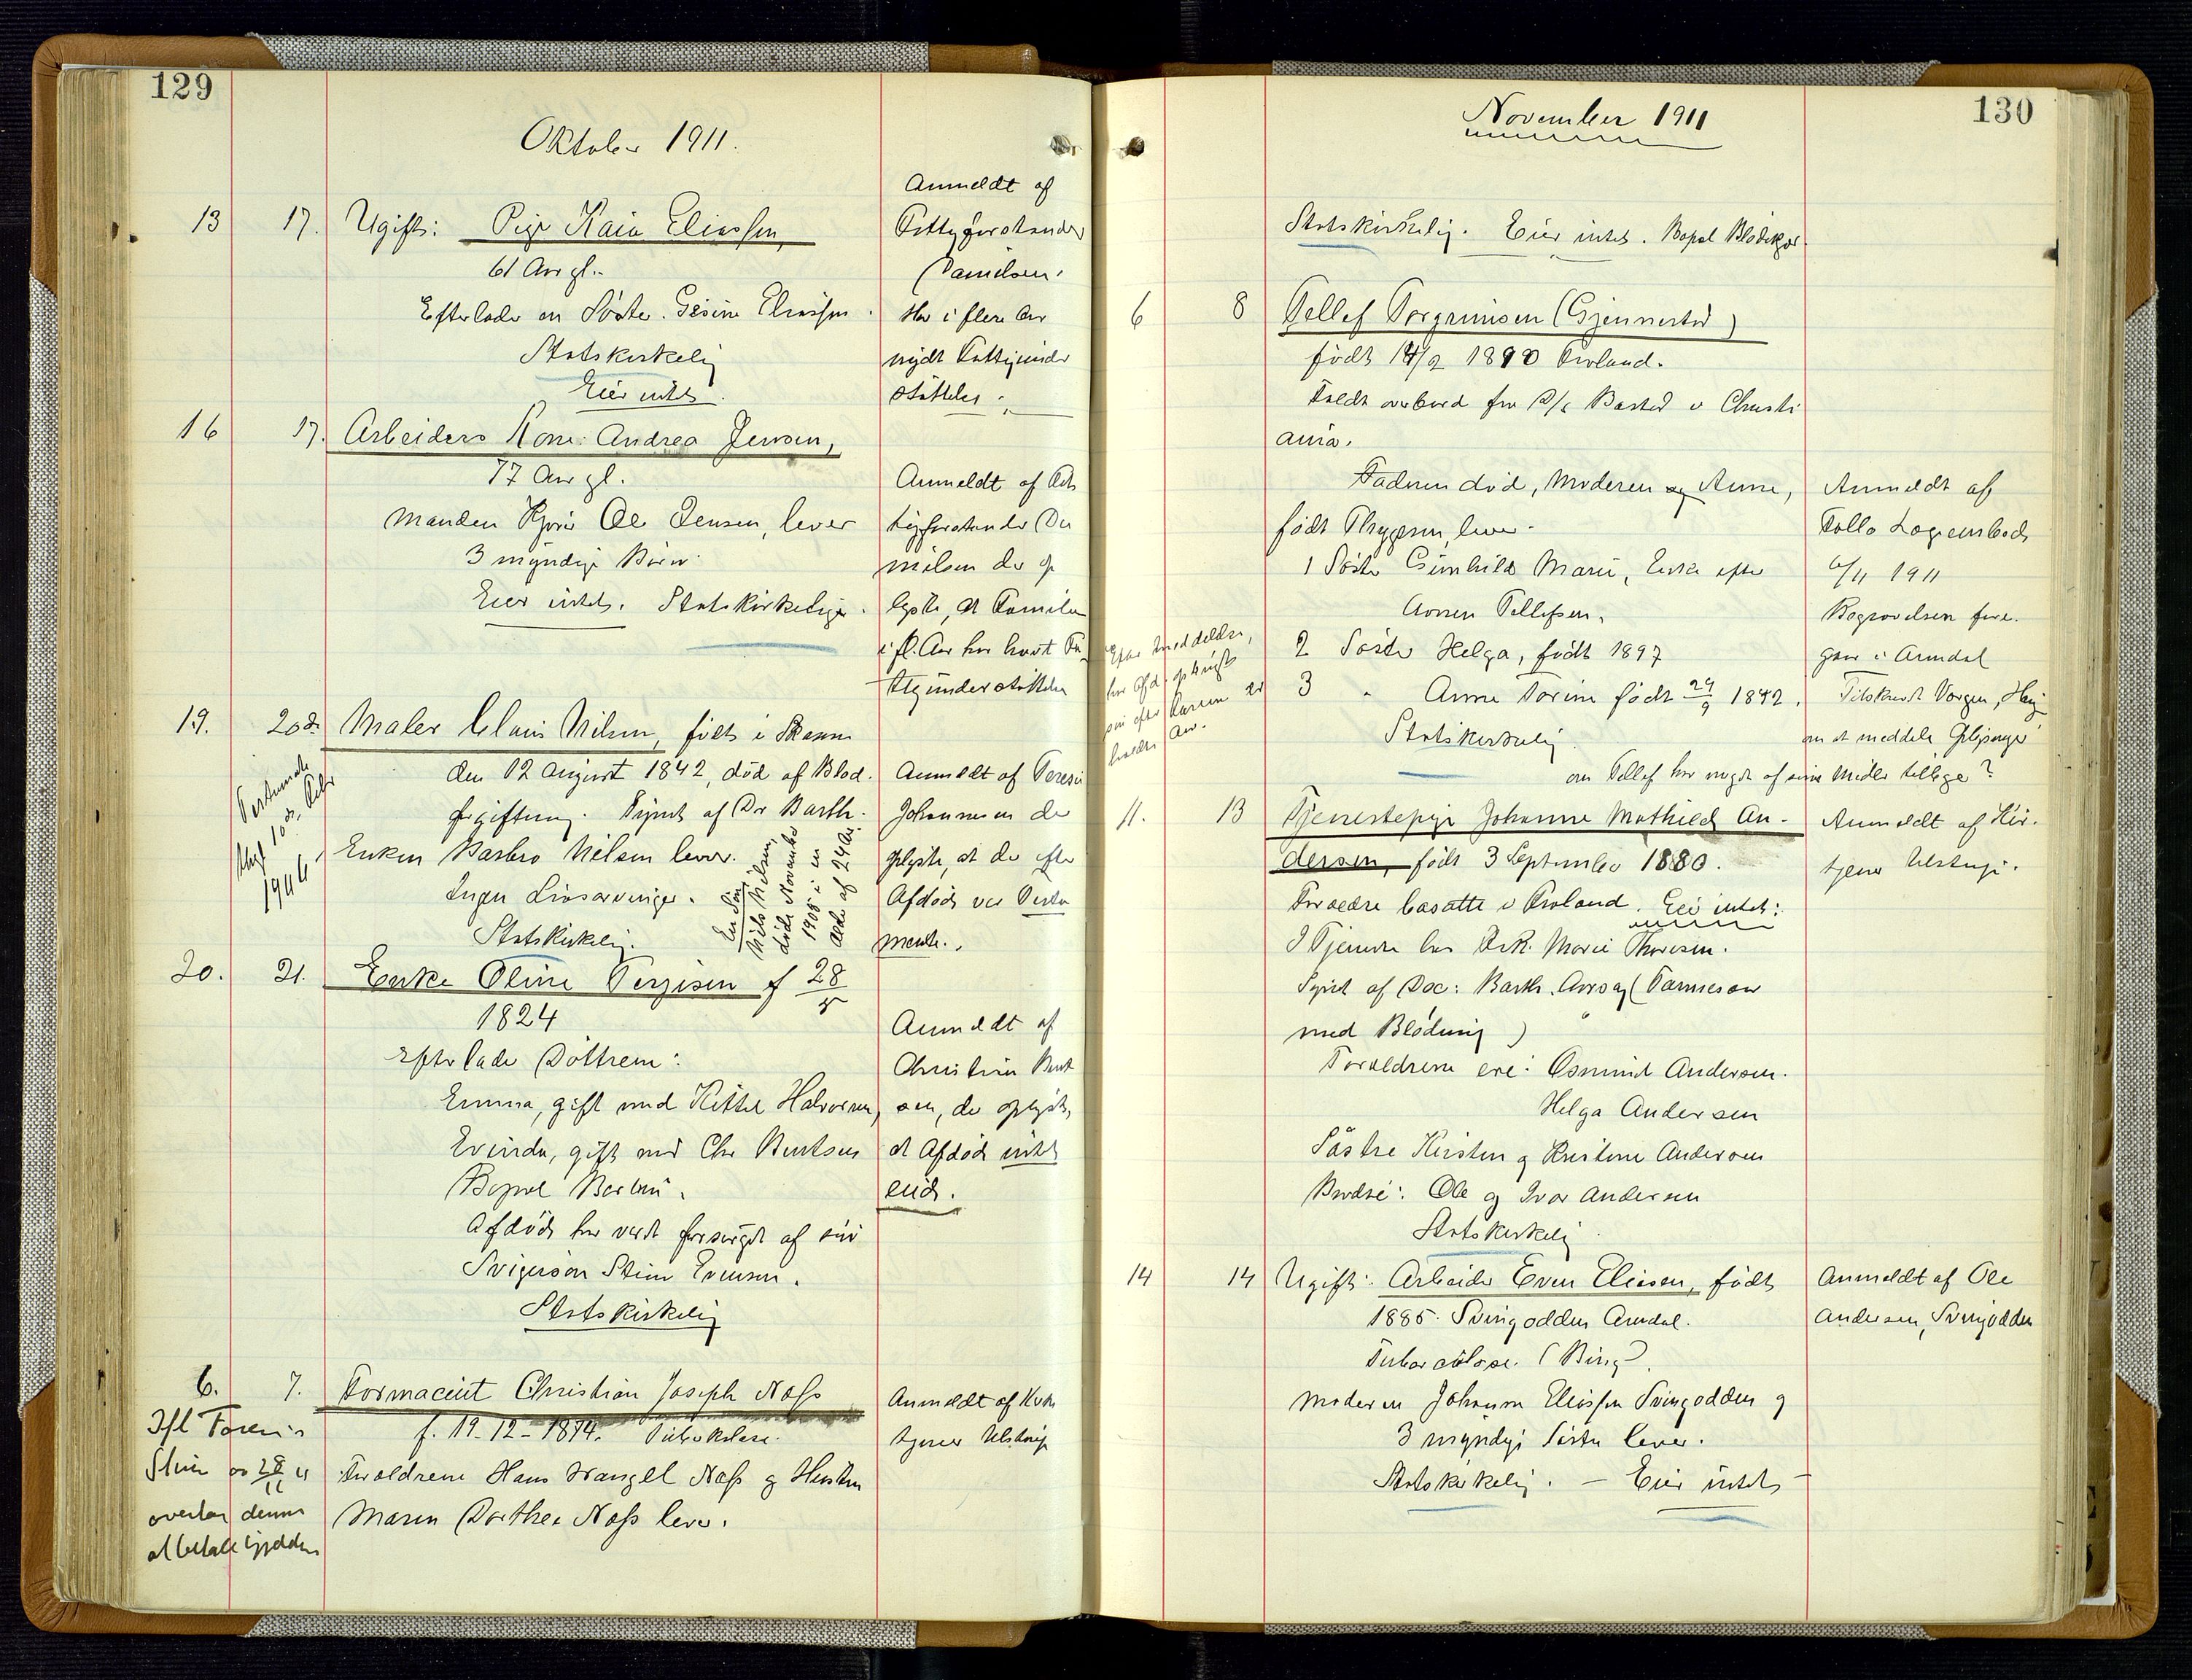 129
Oktober 1911.
13 17. Ugift: Pige Kaia Eliassen,
61 Aar gl.
Efterlader en Søster. Gesine Eliassen.
Statskirkelig
Eier intet.
Anmeldt af
Fattigforstander
Danielsen.
Har i flere Aar
nydt Fattigunder
støttelse.
16 17. Arbeiders Kone: Andrea Jensen,
77 Aar gl.
Manden Ole Jensen, lever
3 myndige Børn.
Eier intet. Statskirkelige.
Anmeldt af Fat
tigforstander Da
nielsen der op
lyste, at Familien
i fl. Aar har havt Fa
ttigunderstøttelse
19. 20de Maler Claus Nilsen, født i
den 12 August 1842, død af Blod-
forgiftning. Synet af Dr Barth.
Enken Barbro Nilsen lever.
Ingen Livsarvinger.
Statskirkelig.
En Søn,
Nils Nilsen,
døde November
1905 i en
Alder af 24 Aar
Testamente
10de
Anmeldt af
Johannesen der
oplyste, at der efter
Afdøde var Testa
mente.
20. 21. Enke Oline Terjesen f 28/5
1824
Efterlader Døttrene:
Emma, gift med Kittel Halvorsen,
Evinda, gift med Chr Bentsen
Bopæl Barbu.
Afdøde har været forsørget af sin
Svigersøn Stien Evensen.
Statskirkelig
Anmeldt af
Christian Bent
sen, der oplyste,
at Afdøde intet
eied.
6. 7. Farmaceut Christian Joseph Næss
f. 19-12-1874. Tuberkulose.
Forældrene Hans Wangel Næss og Hustru
Maren Dorthea Næss lever.
overtar denne
at betale Gjælden
Anmeldt af Kirke
tjener Ulstrup
130
November 1911
Statskirkelig. Eier intet. Bopæl Blødekjær.
6 8 Tellef Torgrimsen (Gjennestad)
født 14/9 1890 Froland.
Faldt overbord fra D/S Bastø i Christi
ania.
Faderen død, Moderen Anne,
født Thygesen, lever.
1 Søster Gunhild Marie, Enke efter
Tellefsen.
2 Søster Helga, født 1897
3 " Anne Torine født 29/9 1892.
Statskirkelig.
om Tellef har noget af sine Midler tilbage?
Anmeldt af
Follo Lagensbods
6/11 1911
Begravelsen fore-
gaar i Arendal
om at meddele Oplysninger
11. 13 Tjenestepige Johanne Mathilde An-
dersen, født 3 September 1880.
Forældre bosatte i Froland. Eier intet:
I Tjeneste hos Frk. Marie Thoresen.
Synet af Doc: Barth. Aarsag (Tarmesaar
med Blødning)
Forældrene ere: Osmund Andersen.
Helga Andersen
Søstre Kirsten og Kristine Andersen
Brødre: Ole og Ivar Andersen
Statskirkelig.
Anmeldt af Kir-
tjener Ulstrup.
14 14 Ugift: Arbeider Even Eliasen, født
1885. Svingodden Arendal.
Tuberculose. (Bing).
Moderen Johanne Eliassen Svingodden og
3 myndige Søstre lever.
Statskirkelig. – Eier intet –
Anmeldt af Ole
Andersen, Svingodden